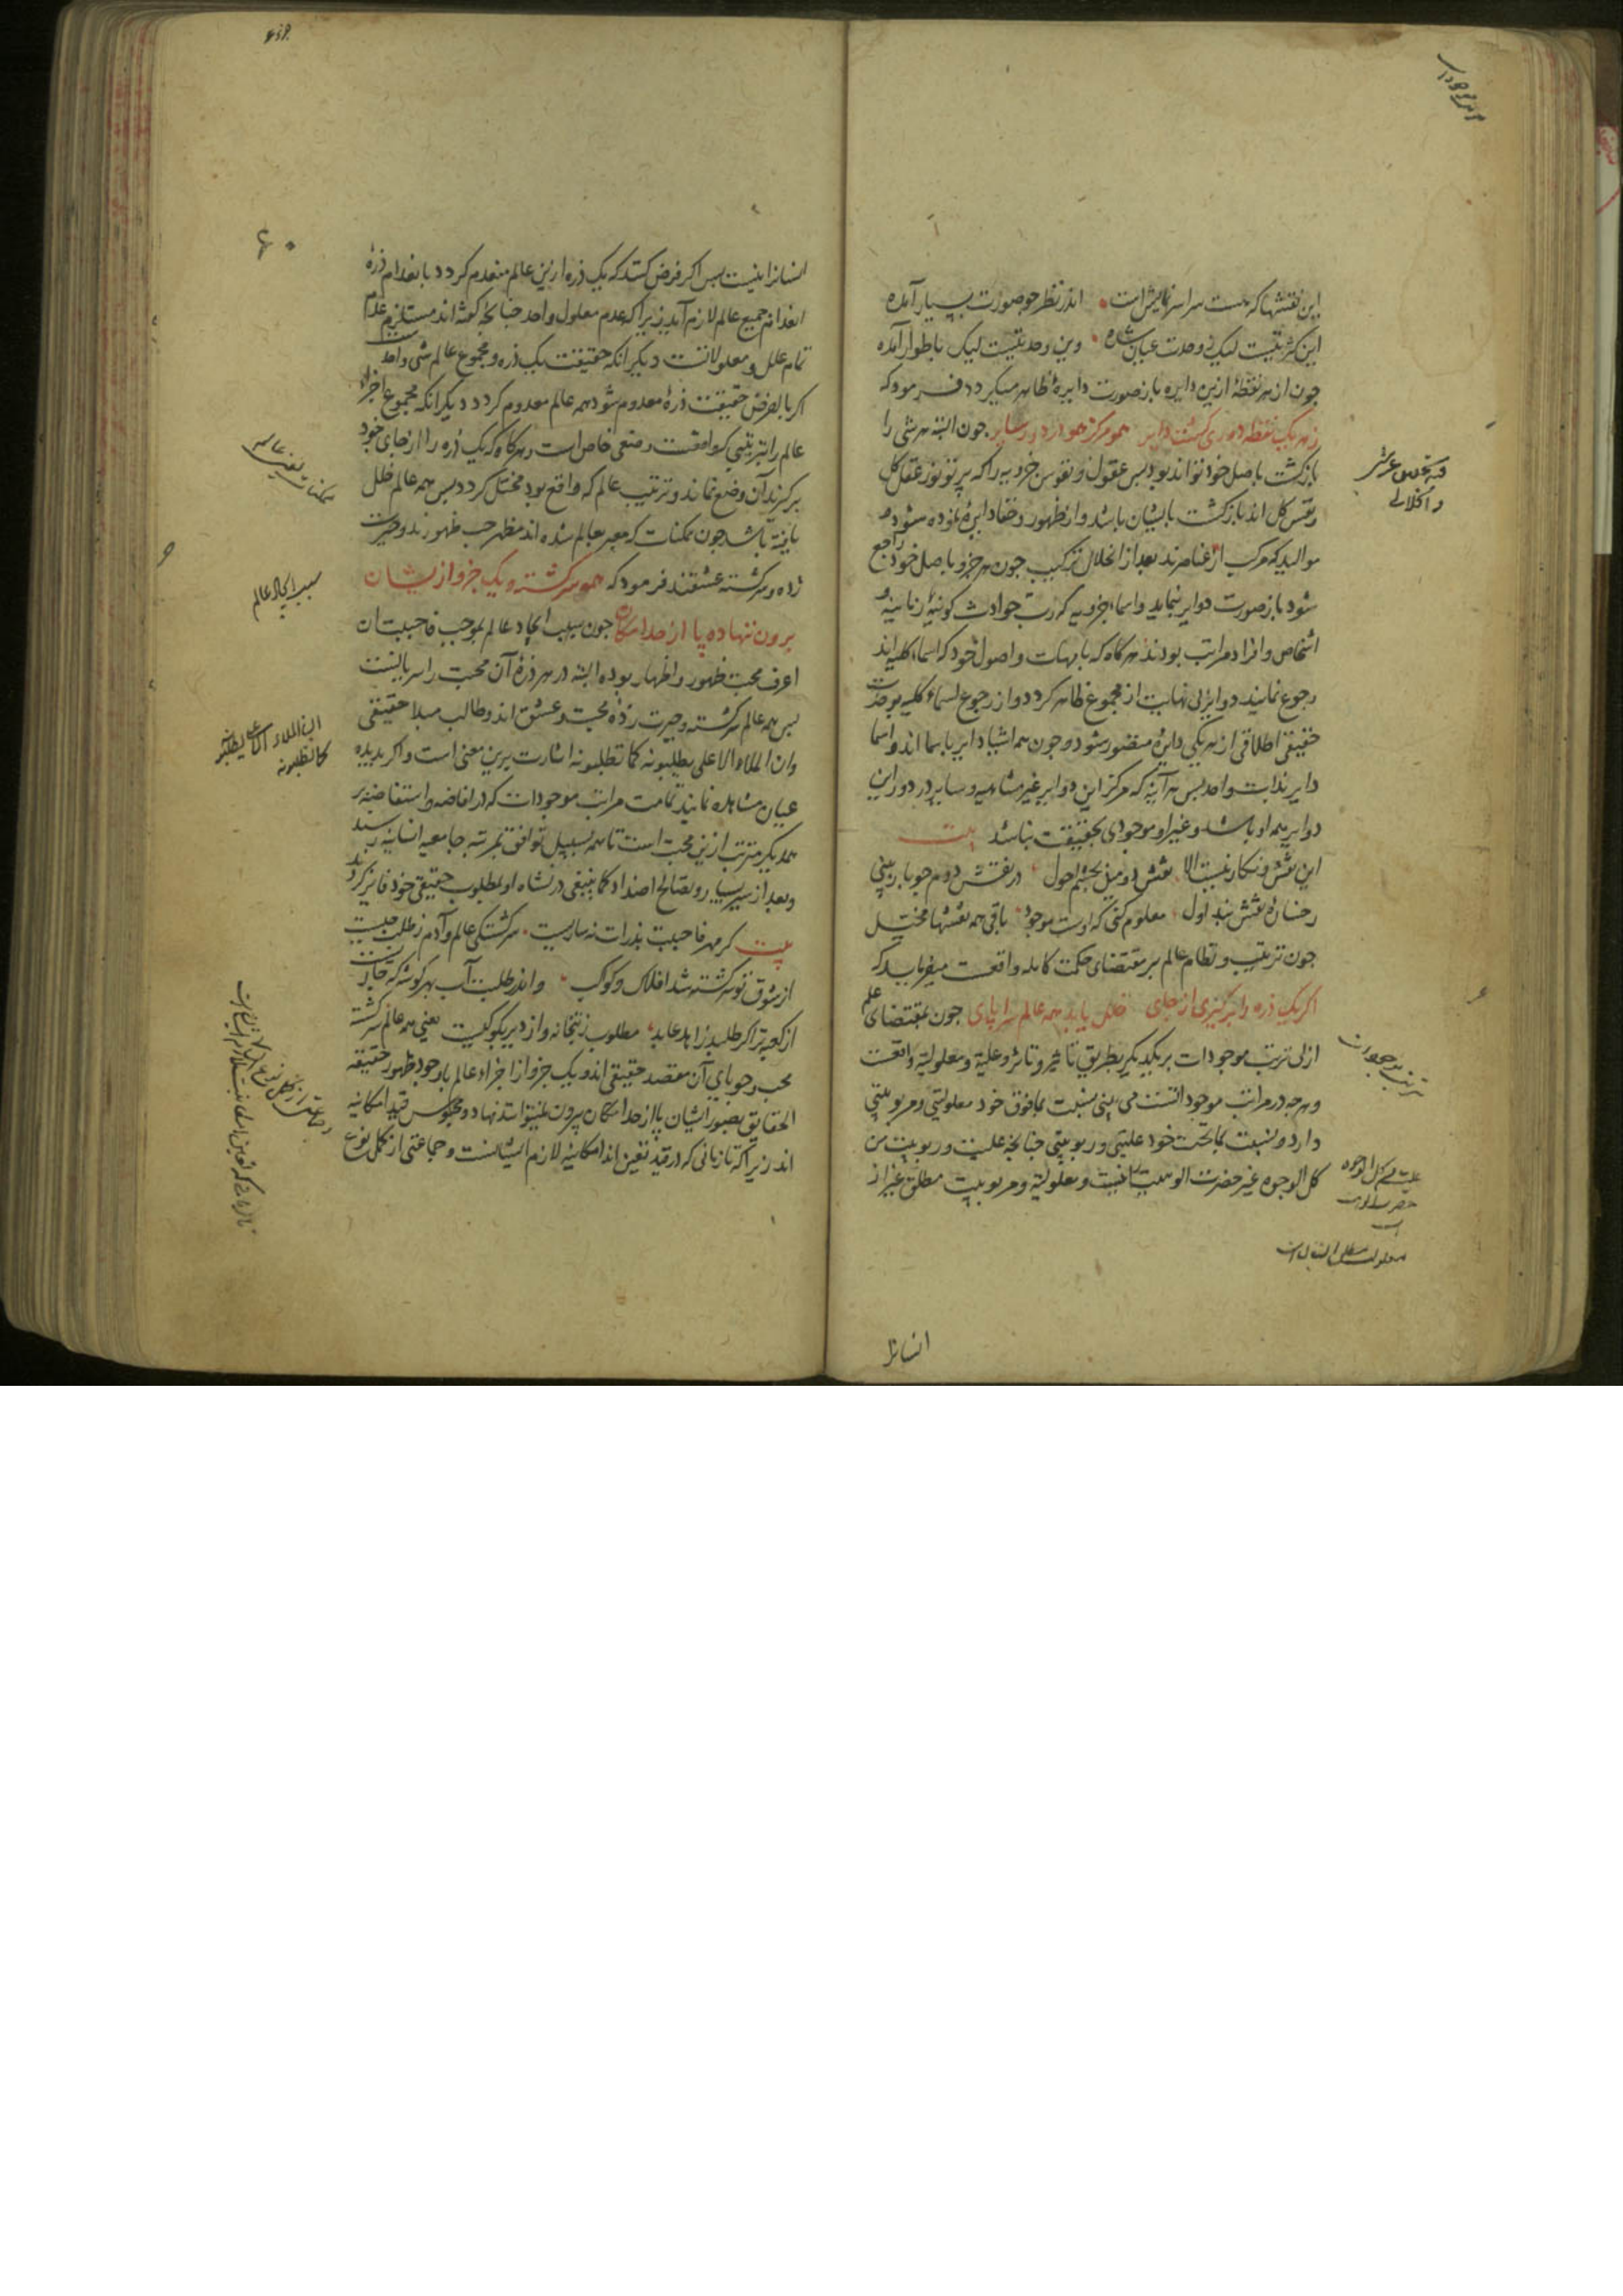 این نقشها که هست سراسر نمایش است اندر نظر چو صورت بسیار آمده
این کثرتیست لیک ز وحدت عیان شده وین وحدتیست لیک باطوار آمده
چون از هر نقطهٔ ازین دایره باز صورت دایرهٔ ظاهر میکردد فرمود که
ز هر یک نقطه دوری کشته دایر همو مرکز همو در دور سایر چون البته هر شی را
بازکشت باصل خود تواند بود پس عقول و نفوس جزویه را که پرتو نور عقل کل
و نفس کل اند بازکشت بایشان باشد و از ظهور و خفا دایرهٔ نموده شود و
موالید که مرکب از عناصرند بعد از انحلال ترکیب چون هر جزو باصل خود راجع
شود باز صورت دوایر نماید و اسماء جزویه که رب حوادث کونیهٔ زمانیه و
اشخاص و افراد مراتب بودند هر کاه که بامهات و اصول خود که اسماء کلیه اند
رجوع نمایند دوایر بی نهایت از مجموع ظاهر کردد و از رجوع اسماء کلیه بوحدت
حقیقی اطلاقی از هر یکی دایرهٔ متصور شود و چون همه اشیا دایر باسما اند و اسما
دایر بذات واحد پس هر آینه که مرکز این دوایر غیر متناهیه و سایر در دور این
دوایر همه او باشد و غیر او موجودی بحقیقت نباشد بیت
این نقش و نکار نیست الا نقش دومین بچشم احول در نقش دوم چو باز بینی
رخسارهٔ نقش بند اول معلوم کنی که اوست موجود باقی همه نقشها مخیل
چون ترتیب و نظام عالم بر مقتضای حکمت کامله واقعست میفرماید که
اکر یک ذره را برکیری از جای خلل یابد همه عالم سراپای چون بمقتضای علم
ازلی ترتب موجودات بر یکدیکر بطریق تاثیر و تاثر و علیة و معلولیة واقعست
و هر چه در مراتب موجوداتست می بینی نسبت بمافوق خود معلولیتی و مربوبیتی
دارد و نسبت بماتحت خود علیتی و ربوبیتی چنانچه علیت و ربوبیت من
کل الوجوه غیر حضرت الوهیت را نیست و معلولیة و مربوبیت مطلق غیر از
ترتب موجودات
علیت من کل الوجوه
حضرت الوهیت
است
انسانرا
۶۰
انسانرا نیست پس اکر فرض کنند که یک ذره ازین عالم منعدم کردد بانعدام ذرهٔ
انعدام جمیع عالم لازم آید زیرا که عدم معلول واحد چنانچه کفته اند مستلزم عدم
تمام علل و معلولاتست دیکر انکه حقیقت یک ذره و مجموع عالم شی واحدست
اکر بالفرض حقیقت ذرهٔ معدوم شود همه عالم معدوم کردد دیکر انکه مجموع اجزاء
عالم را بترتیبی که واقعست وضعی خاص است و هرکاه که یک ذره را از جای خود
برکیرند آن وضع نماند و ترتیب عالم که واقع بود مختل کردد پس همه عالم خلل
یافته باشد چون ممکنات که معبر بعالم شده اند مظهر حب ظهورند و حیرت
زده و سرکشته عشقند فرمود که همه سرکشته و یک جزو ازیشان
برون ننهاده پا از حد امکان چون سبب ایجاد عالم بموجب فاحببت ان
اعرف محبت ظهور و اظهار بوده البته در هر ذرهٔ آن محبت را سریانست
پس همه عالم سرکشته و حیرت زدهٔ محبت و عشق اند و طالب مبداء حقیقی
وان الملاء الاعلی یطلبونه کما تطلبونه اشارت برین معنی است و اکر بدیده
عیان مشاهده نمایند تمامت مراتب موجودات که در افاضه و استفاضه بر
همدیکر مترتب ازین محبت است تا همه بسبیل توافق بمرتبه جامعه انسانیه رسند
و بعد از سیر و تصالح اضداد کما ینبغی در نشاه او بمطلوب حقیقی خود فایز کردند
بیت کر مهر فاحببت بذرات نه ساریست سرکشتکی عالم و آدم ز طلب چیست
از شوق تو سرکشته شد افلاک و کواکب و اندر طلبت آب بهر کوشه که جاریست
از کعبه ترا کر طلبد زاهد و عابد مطلوب ز بتخانه و از دیر بکو کیست یعنی همه عالم سرکشته
محبت و جویای آن مقصد حقیقی اند و یک جزو از اجزاء عالم باوجود ظهور حقیقه
الحقایق بصور ایشان پا از حد امکان بیرون نمیتوانند نهاد و محبوس قید امکانیه
اند زیرا که تا زمانی که در قید تعین اند امکانیه لازم ایشانست و جماعتی از کمل نوع
سبب ایجاد عالم
ان الملاء الاعلی یطلبونه
کما تطلبونه